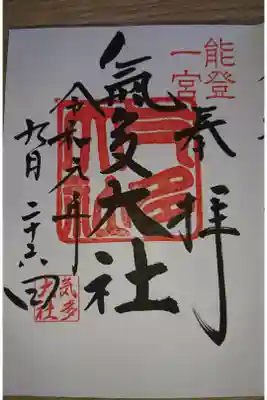 能登
一宮
奉拝
氣多大社
令和元年
九月二十六日
気多
大社